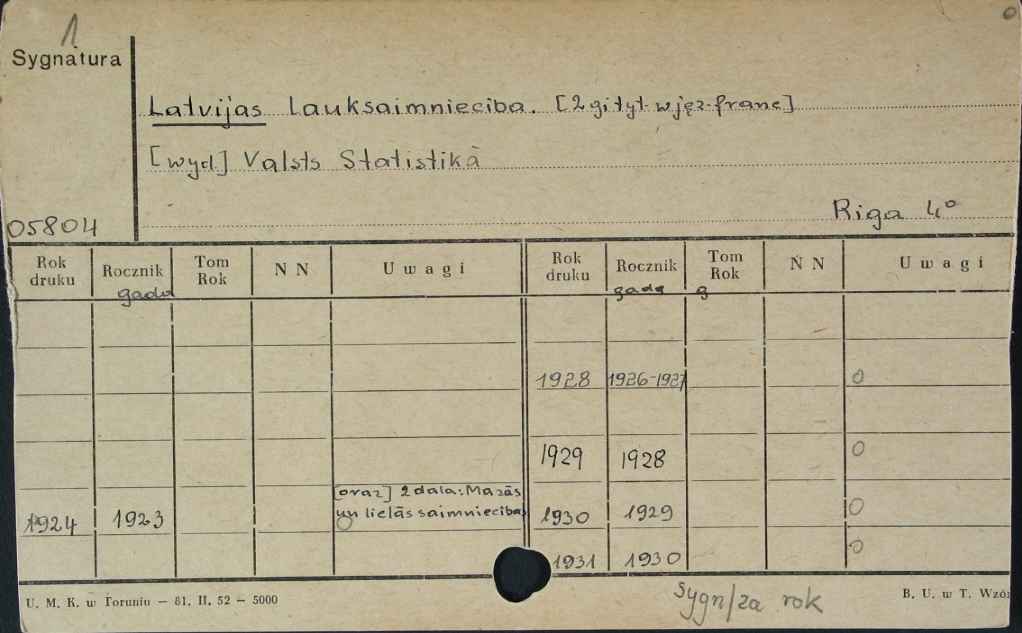 1
Sygnatura
Latvijas lauksaimnieciba. [2gi tyt. w jęz. franc]
[wyd.] Valsts Statistikā
05804
Riga 4°
Rok druku Rocznik Tom Rok N N Uwagi Rok druku Rocznik Tom Rok N N Uwagi
gada gada g
1928 1926-1927 0
1929 1928 0
[oraz] 2 dala: Mazās
1924 1923 un lielās saimniecibas 1930 1929 0
1931 1930 0
U. M. K. w Toruniu — 81. II. 52 — 5000
Sygn/za rok
B. U. w T. Wzór